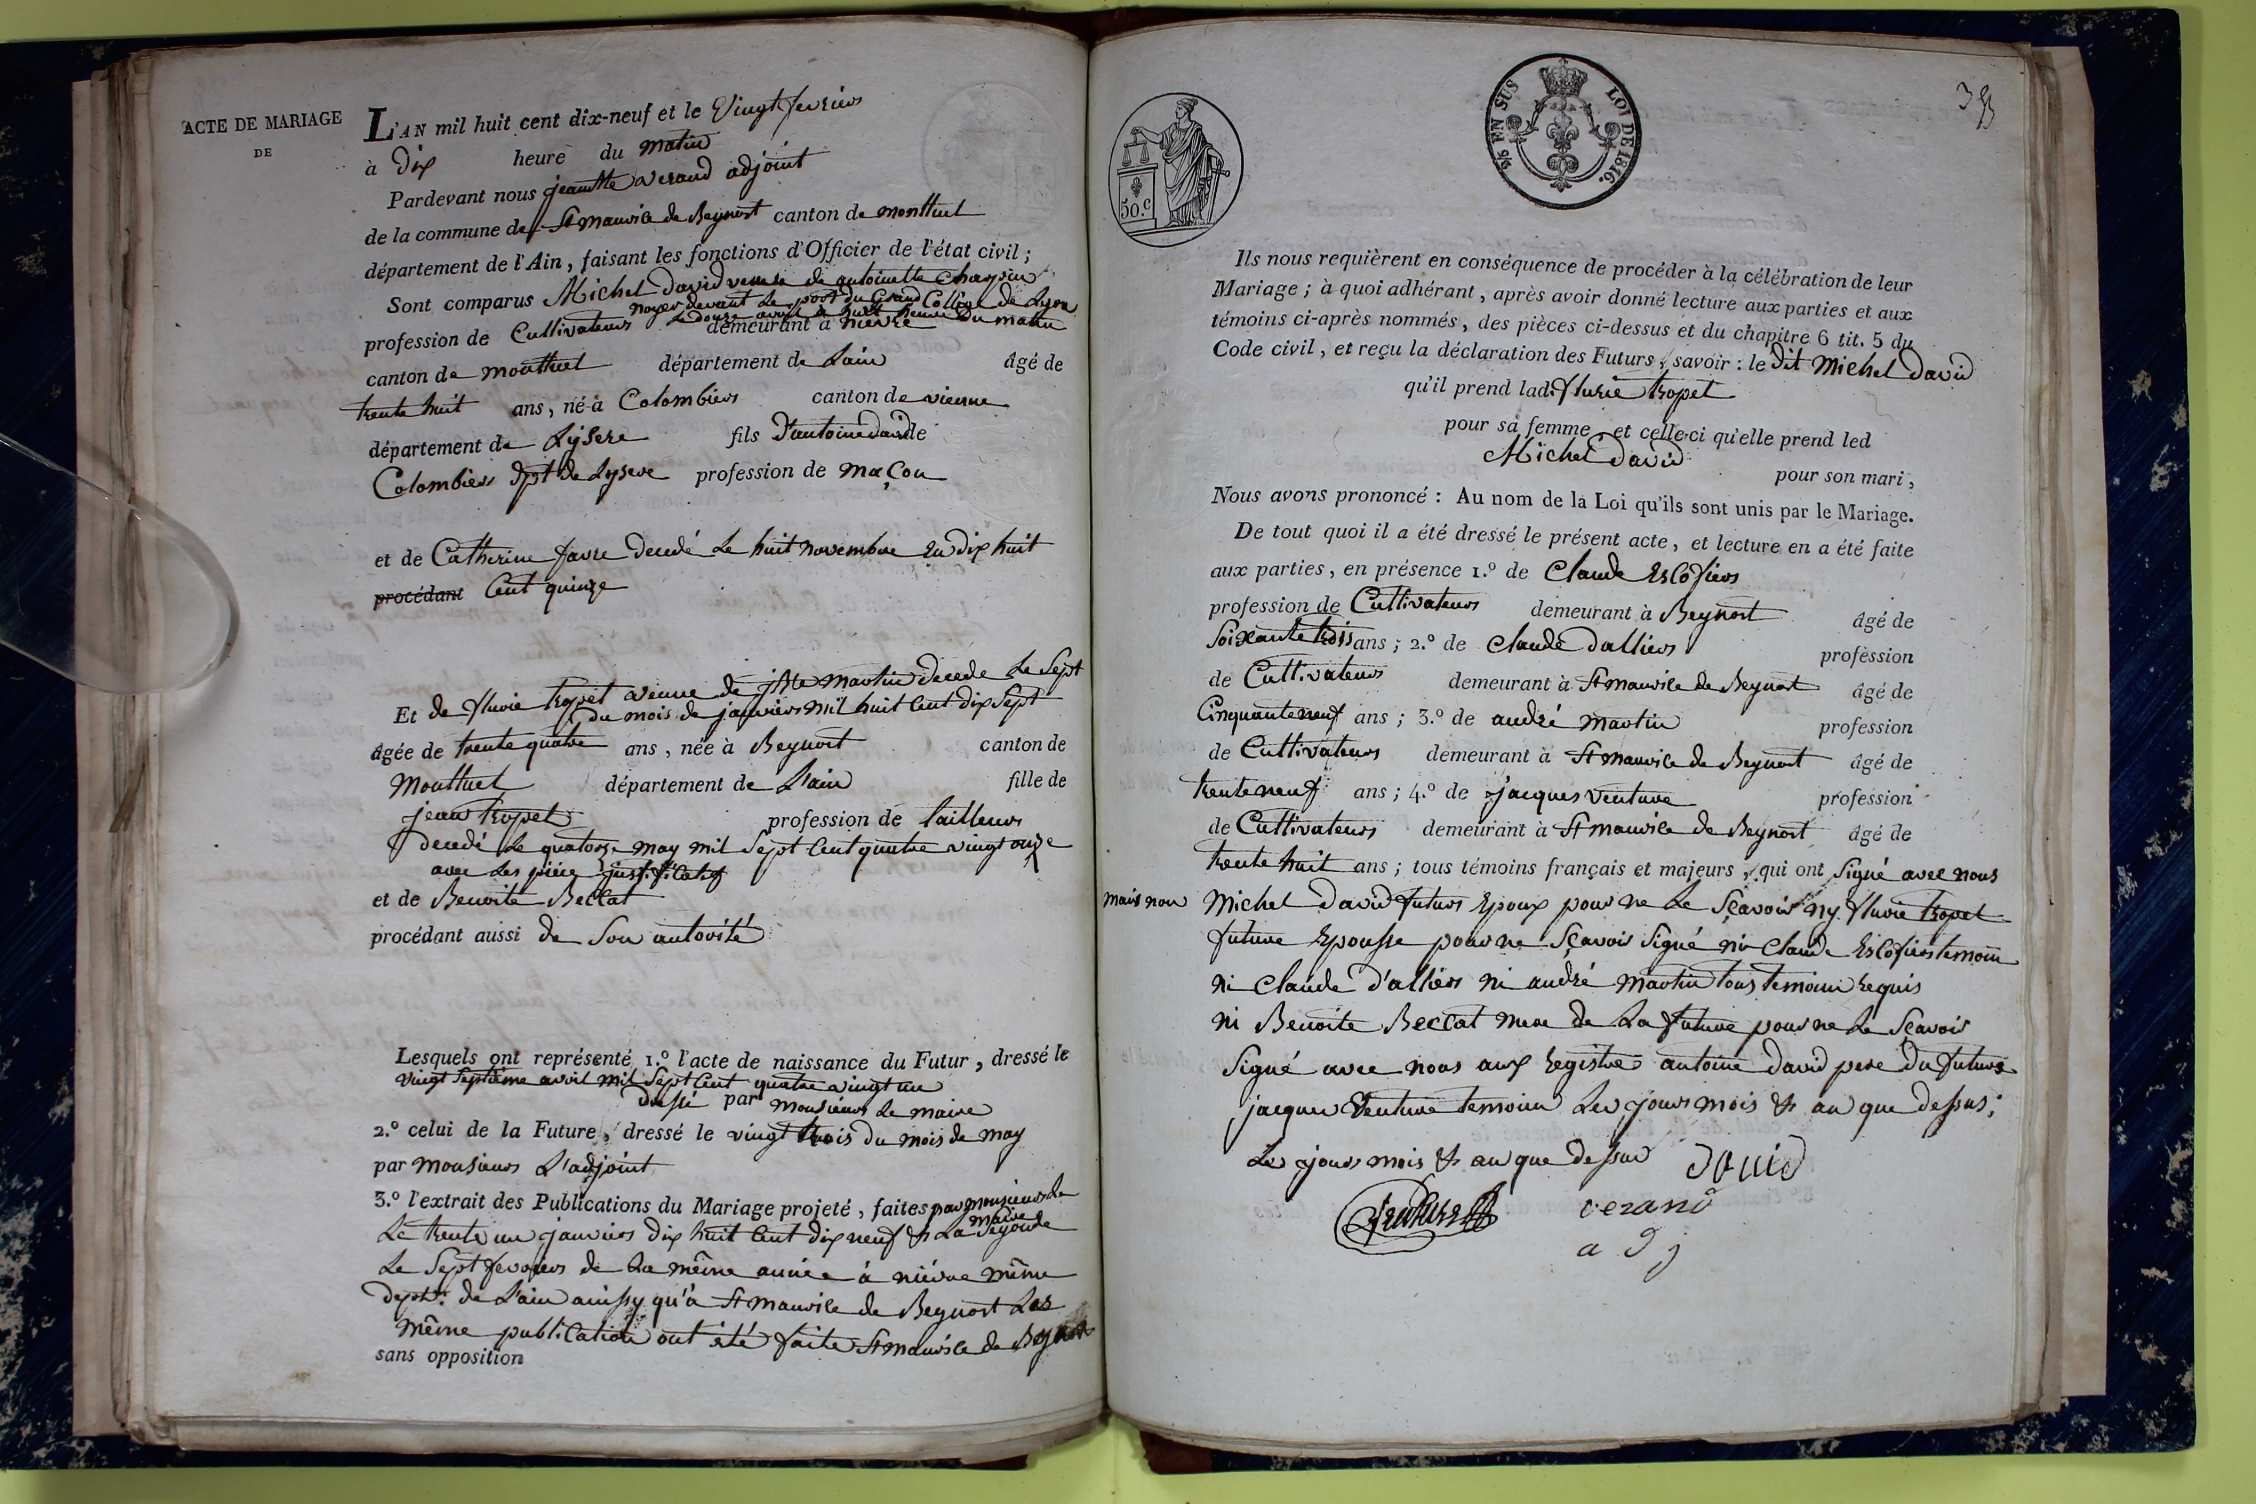 ACTE DE MARIAGE
DE
L'AN mil huit cent dix-neuf et le Vingt fevrier
à dix heure du matin
Pardevant nous jeantte verand adjoint
de la commune de St maurice de Beynost canton de montluel
département de l'Ain, faisant les fonctions d'Officier de l'état civil ;
Sont comparus Michel David veuve de antoinette
noyer devant Le port du Grand College de Lyon
Le douze avril a huit heure Du matin
profession de Cultivateurs demeurant à nievre
canton de montluel département de Lain âgé de
trente huit ans, né à Colombiers canton de vienne
département de Lysere fils D'antoine david de
Colombiers dpt de Lysere profession de maçon
et de Catherine favre decedé Le huit novembre En dix huit
procédant Cent quinze
Et de fluvie tropet veuve de jBte martin decede Le Sept
du mois de janviers mil huit Cent dix Sept
âgée de trente quatre ans, née à Beynost canton de
Montluel département de L'ain fille de
jean tropet profession de tailleurs
decedé Le quatorze may mil Sept Cent quatre vingt onze
avec Les piéce justificatif
et de Benoite Beccat
procédant aussi de Son autorité
Lesquels ont représenté 1.º l'acte de naissance du Futur, dressé le
vingt Septième avril mil Sept Cent quatre vingt un
dressé par Monsieurs Le maire
2.º celui de la Future, dressé le vingt trois du mois de may
par Monsieurs L'adjoint
3.º l'extrait des Publications du Mariage projeté, faites par Monsieurs Le
maire
Le trente un janviers dix huit Cent dix neuf & La Segonde
Le Sept fevriers de La même année à niévre même
dept: de L'ain ainssy qu'à St maurice de Beynost Les
même publication ont été faite St maurice de Beynost
sans opposition
50.c
9/6 EN SUS LOI DE 1816.
Ils nous requièrent en conséquence de procéder à la célébration de leur
Mariage ; à quoi adhérant, après avoir donné lecture aux parties et aux
témoins ci-après nommés, des pièces ci-dessus et du chapitre 6 tit. 5 du
Code civil, et reçu la déclaration des Futurs, savoir : le dit Michel David
qu'il prend lad. flurie tropet
pour sa femme, et celle-ci qu'elle prend led
Michel David
pour son mari,
Nous avons prononcé : Au nom de la Loi qu'ils sont unis par le Mariage.
De tout quoi il a été dressé le présent acte, et lecture en a été faite
aux parties, en présence 1.º de Claude Escofiers
profession de Cultivateurs demeurant à Beynost âgé de
Soixante trois ans ; 2.º de Claude dalliers profession
de Cultivateurs demeurant à St maurice de Beynost âgé de
Cinquante neuf ans ; 3.º de andré martin profession
de Cultivateurs demeurant à St maurice de Beynost âgé de
trente neuf ans ; 4.º de jacques venture profession
de Cultivateurs demeurant à St maurice de Beynost âgé de
trente huit ans ; tous témoins français et majeurs, qui ont Signé avec nous
mais non Michel David futurs Epoux pour ne Le Sçavoir ny fluvie tropet
future Epousse pour ne Sçavoir Signé ni Claude Escofiers temoin
ni Claude d'alliers ni andré martin tous temoin Requis
ni Benoite Beccat mere de La future pour ne Le Sçavoir
Signé avec nous aux Registre antoine david pere du futurs
jacques Venture temoin Les jours mois & an que dessus;
Les jours mois & an que dessus David
Venture verand
adj